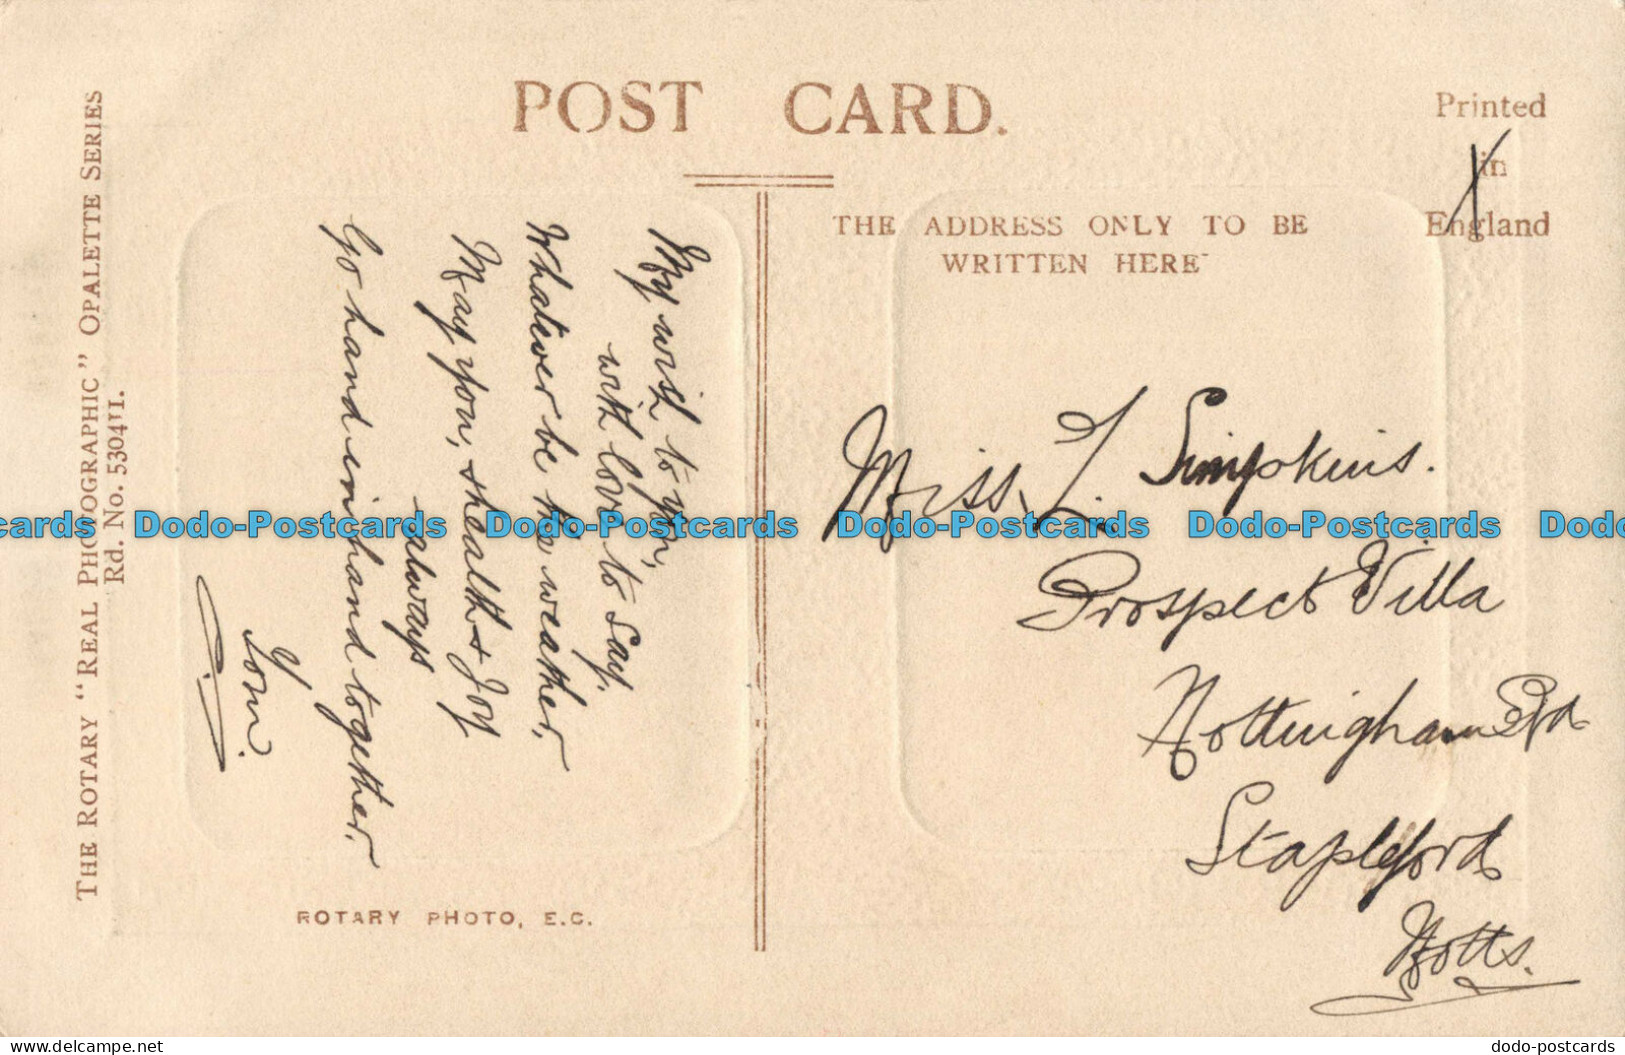 POST CARD.
Printed
in
England
THE ADDRESS ONLY TO BE
WRITTEN HERE
THE ROTARY "REAL PHOTOGRAPHIC" OPALETTE SERIES
Rd. No. 530411.
My wish to you,
with love to say.
Whatever be the weather,
May you, & health & Joy
always
Go hand in hand together.
Tom.
ROTARY PHOTO, E.C.
Miss. L. Simpkins.
Prospect Villa
Nottingham Rd
Stapleford
Notts.
Dodo-Postcards Dodo-Postcards Dodo-Postcards Dodo-Postcards Dodo
www.delcampe.net
dodo-postcards